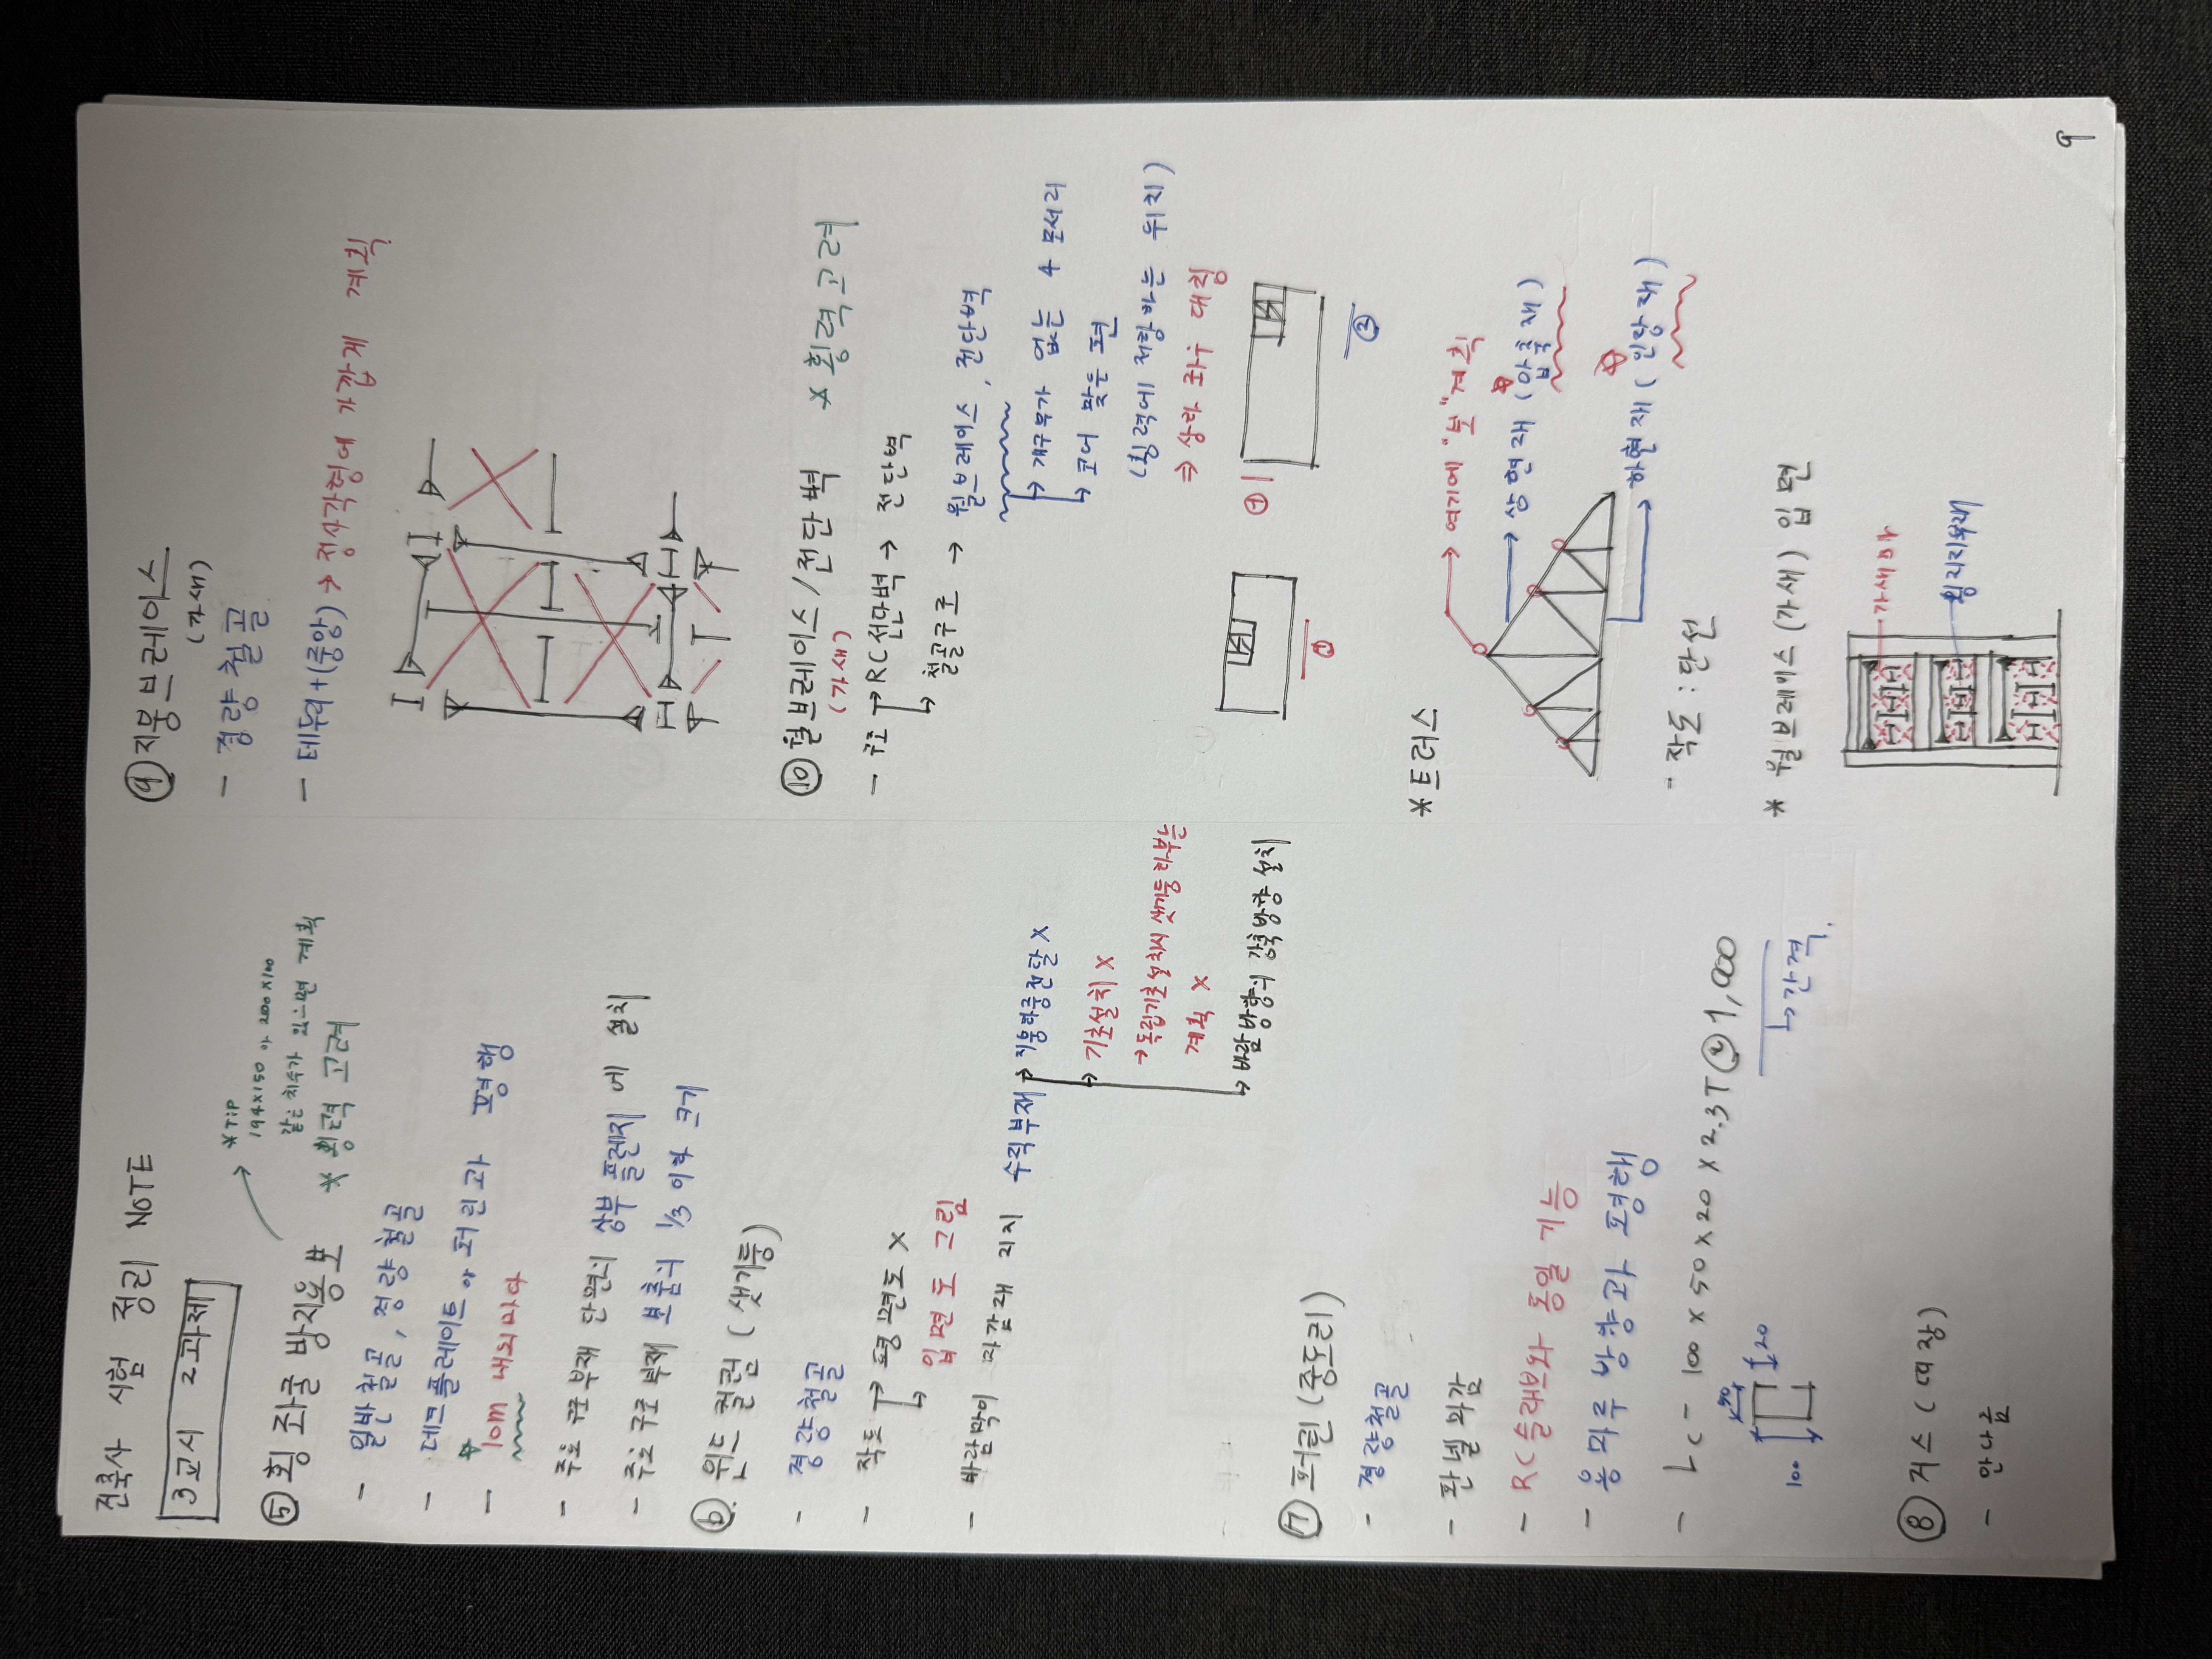 건축사 시험 정리 NOTE
3교시 2과제
⑤ 횡좌굴 방지용 보 * 횡력 고려
* TIP
194x150 이 200x100
같은 치수가 있으면 계획
- 일반철골, 경량철골
- 데크플레이트 아 퍼린과 평행
- 10m 내외마다
- 주요 구조부재 단면의 상부 플렌지에 설치
- 주요 구조부재 보춤의 1/3 이하 크기
⑥ 윈드 컬럼 (샛기둥)
- 경량철골
- 작도 → 평면도 X
→ 입면도 그림
- 바람막이 마감재 지지 수직부재 → 지붕하중전달 X
→ 기초설치 X
→ 독립기초 설치시 샛기둥 하부는
계획 X
→ 바람방향의 강축방향 설치
⑦ 퍼린 (중도리)
- 경량철골
- 판넬 마감
- RC슬래브와 동일 기능
- 용마루 방향과 평행
- LC - 100 x 50 x 20 x 2.3T @ 1,000
→ 간격.
50
20
100
⑧ 거스 (띠장)
- 안나옴
⑨ 지붕브레이스
(가새)
- 경량철골
- 테두리+(중앙) → 정사각형에 가깝게 계획
⑩ 월브레이스/전단벽 * 횡력고려
(가새)
- 구조 → RC전단벽 → 전단벽
→ 철골구조 → 월브레이스, 전단벽
→ 개구부가 없는 4 모서리
→ 코어 맞은 편
(횡력에 저항하는 위치)
⇒ 상하 좌우 대칭
①
①
②
* 트러스
→ 여기에 "보" 계획
→ 상현재 (압축재)
→ 하현재 (인장재)
- 작도 : 단선
* 월브레이스 (가새) 입면
가새마
횡지지부재
9